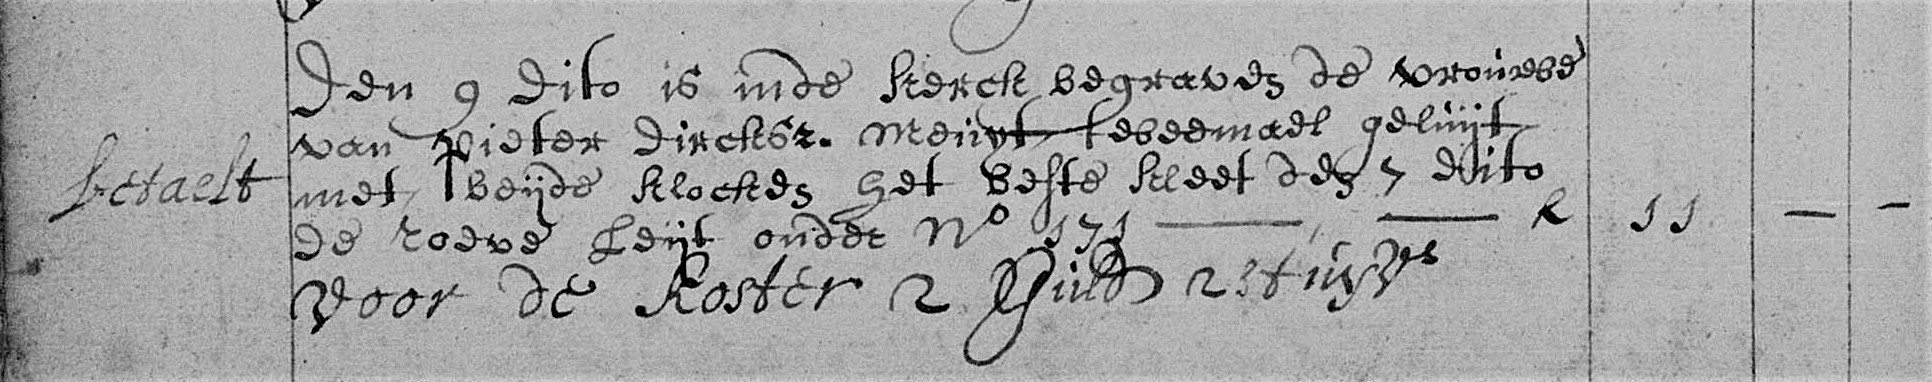 Den 9 dito is inde kerck begraven de vrouwe
van Pieter Dircksz. Meuyt tweemael geluijt
betaelt met beijde klocken het beste kleet den 7 dito
de roeve leijt onder No 171 — — R 11 — —
Voor de Koster 2 Guld 2 stuyvs